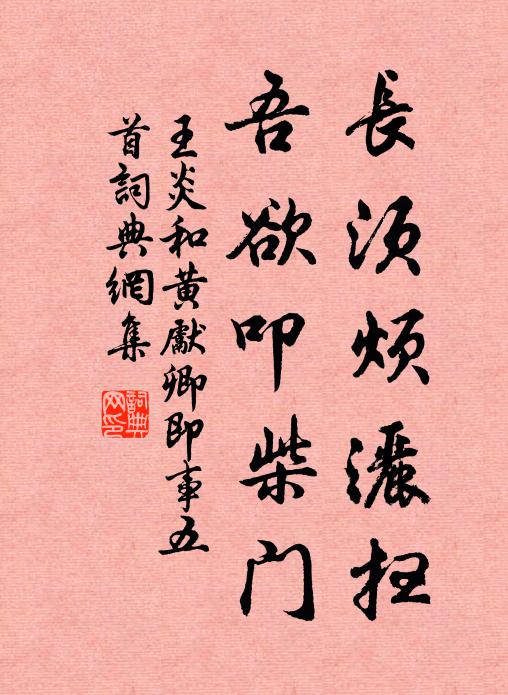 長須煩灑扫
吾欲叩柴门
王炎和黄獻卿即事五
首詞典網集
詞典
网印